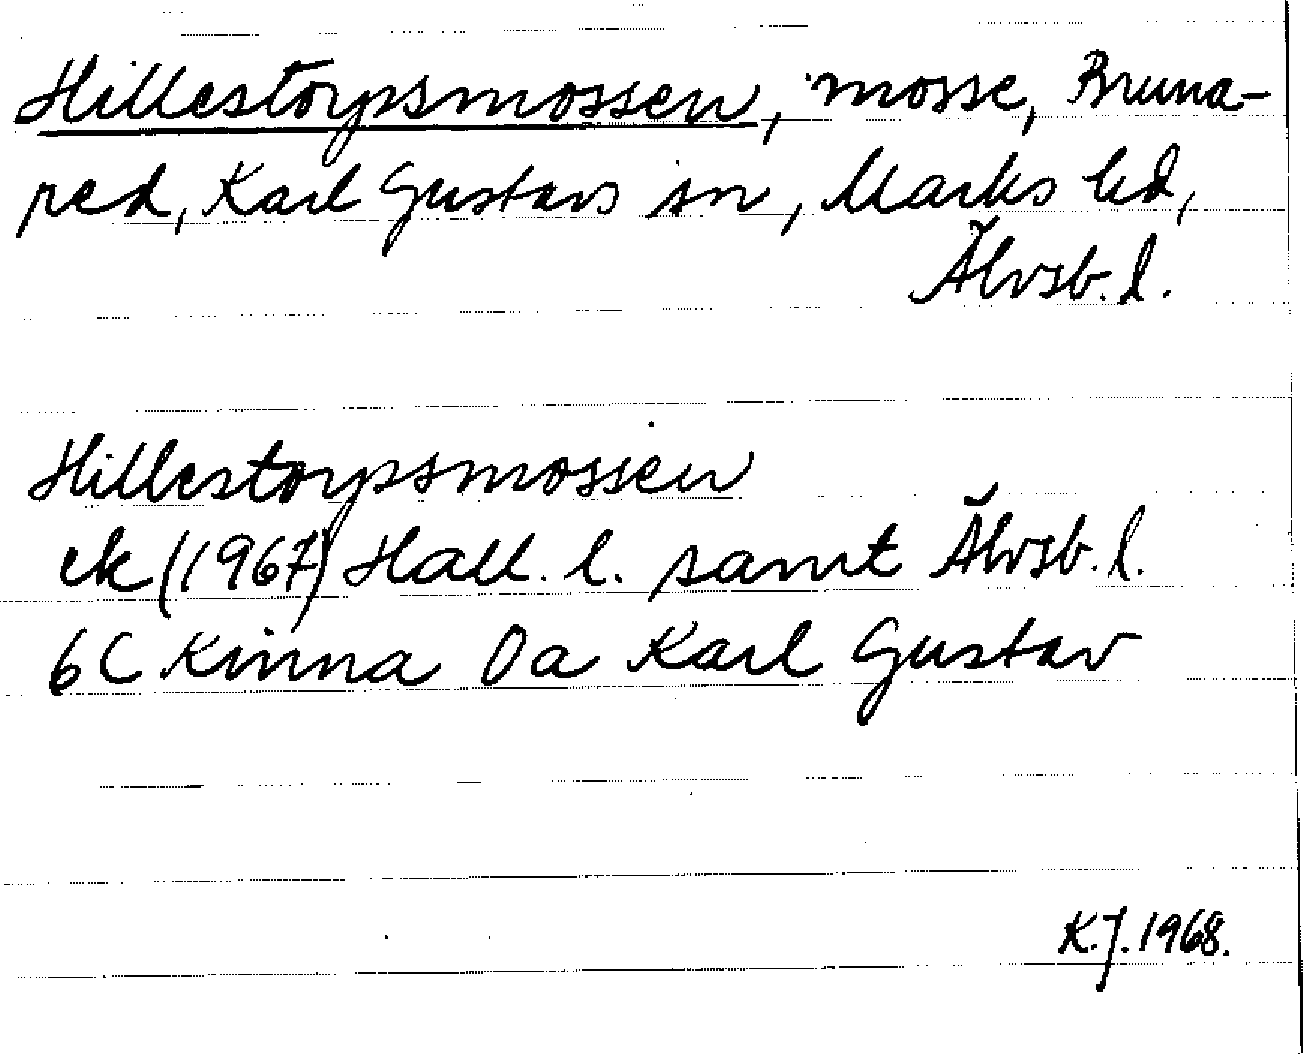 Hillestorpsmossen, mosse, Bruna-
red, Karl Gustavs sn, Marks hd,
Älvsb. l.
Hillestorpsmossen
ek (1967) Hall. l. samt Älvsb. l.
6C Kinna 0a Karl Gustav
K.J. 1968.